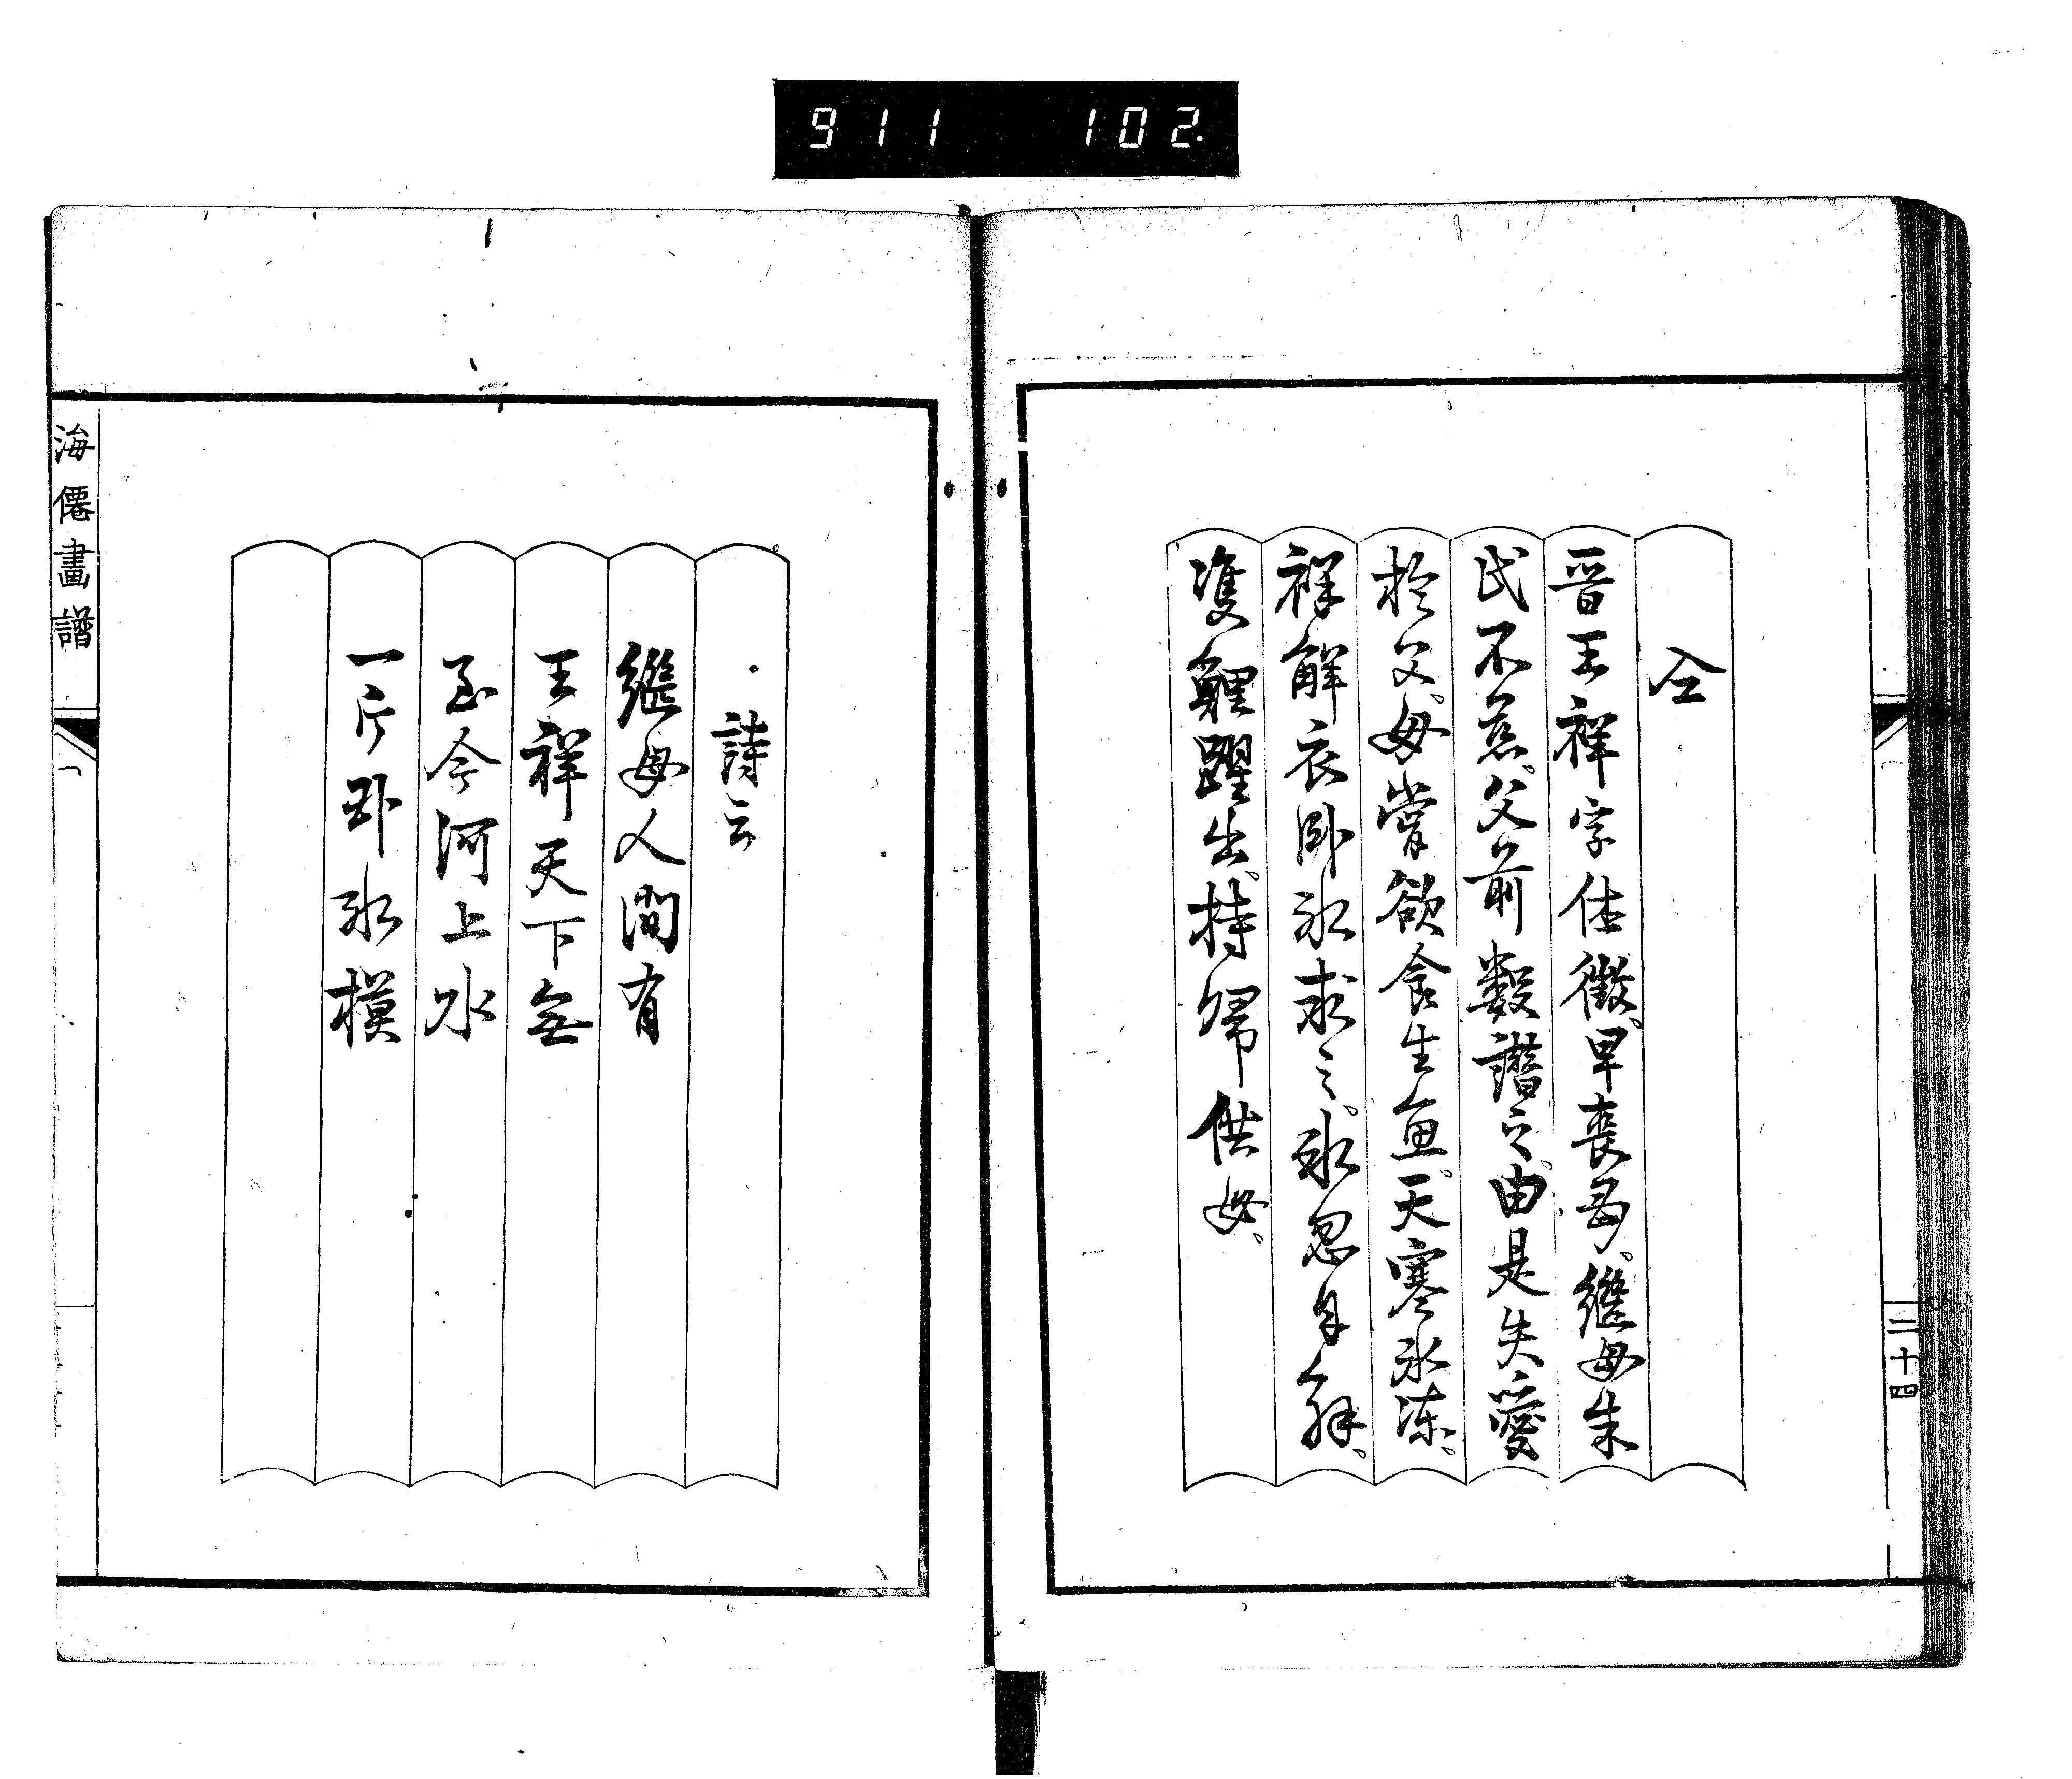 911 102
二十四
仝
晋王祥字休徵。早喪母。継母朱
氏不慈。父前数譖之。由是失愛
於父。母嘗欲食生魚。天寒氷凍。
祥解衣臥氷求之。氷忽自解。
隻鯉躍出。持帰供母。
詩云
継母人間有
王祥天下無
至今河上水
一片臥氷模
海僊畫譜